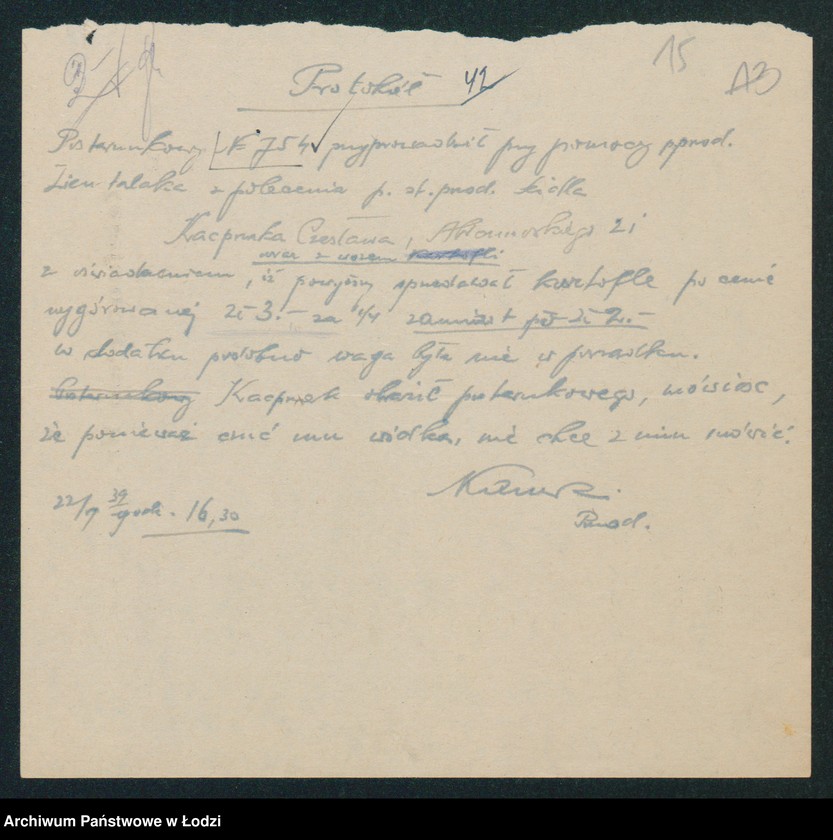 15
A3
Protokół 42
Posterunkowy № 754 przyprowadził przy pomocy ppod.
Zientalaka z polecenia p. st. pnod. Kidla
Kacprzaka Czesława, Abramowskiego 21
wraz z wozem kartofli
z oświadczeniem, iż powyższy sprzedawał kartofle po cenie
wygórowanej zł 3.- za 1/4 zamiast po zł 2.-
w dodatku podobno waga była nie w porządku.
Posterunkowy Kacprzak obraził posterunkowego, mówiąc,
że ponieważ czuć mu wódką, nie chce z nim mówić.
22/9 39 godz. 16,30
Pnod.
Archiwum Państwowe w Łodzi